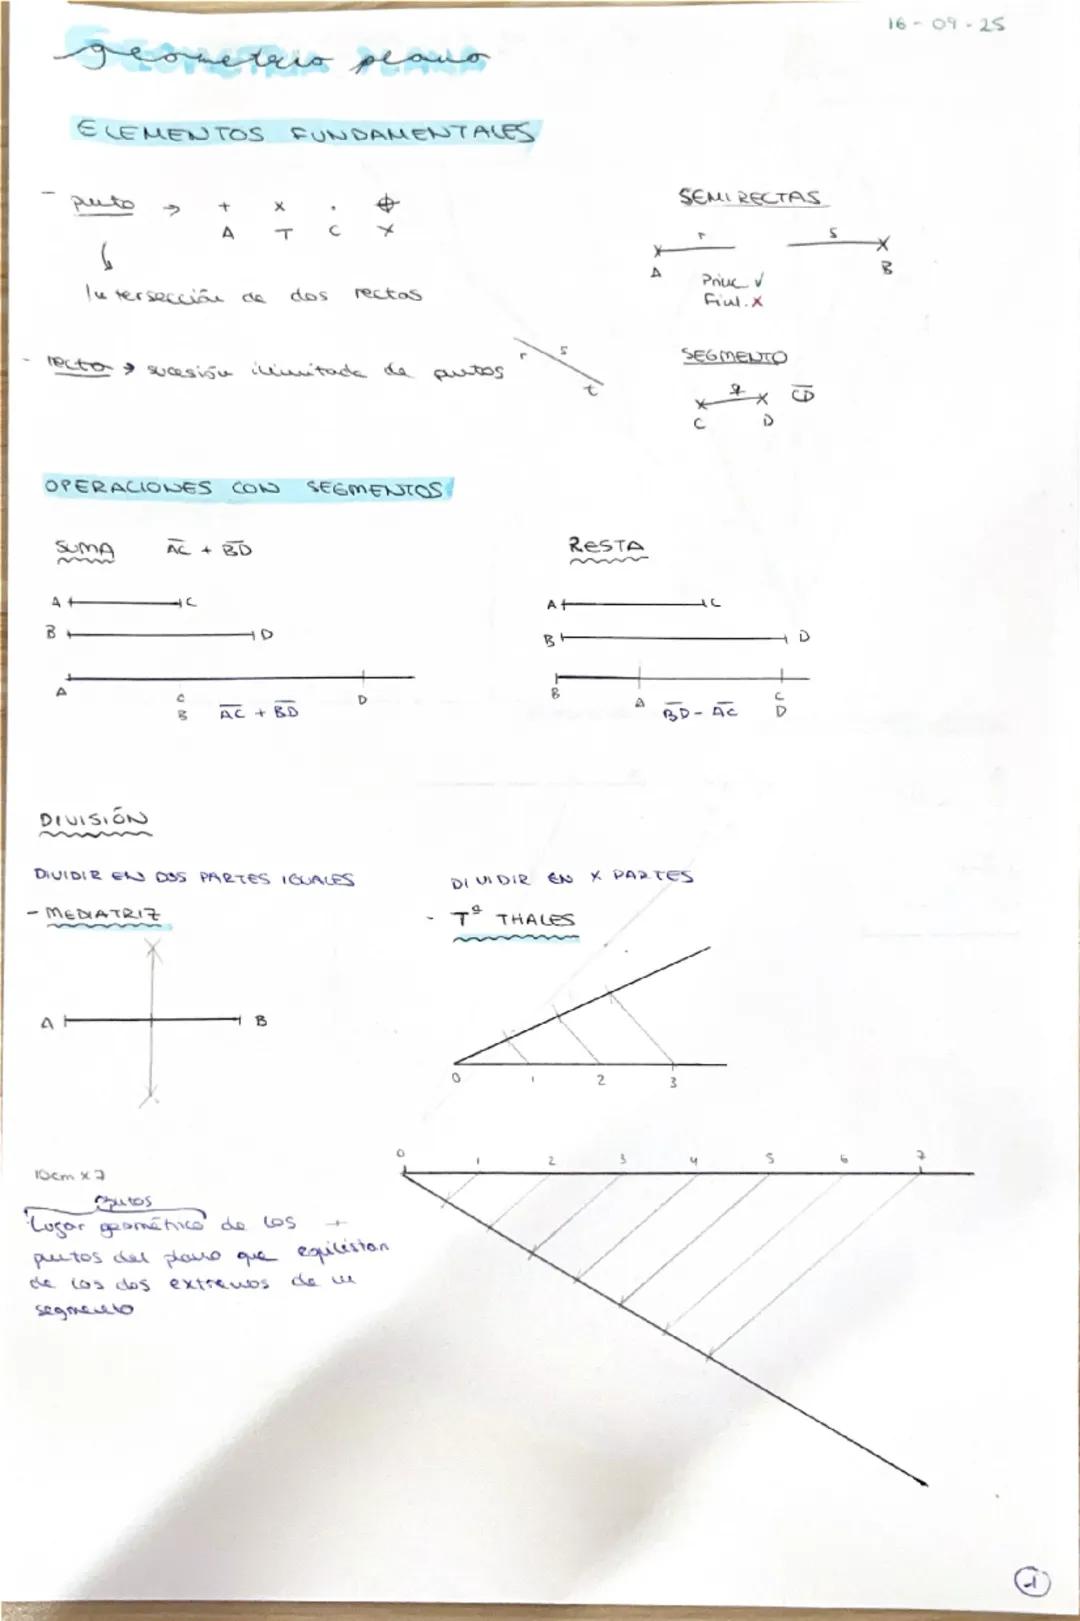 16-09-25
geometría plana
ELEMENTOS FUNDAMENTALES
- punto → + x . ⌖
A T C X
Intersección de dos rectas
- recta → sucesión ilimitada de puntos
r s t
SEMIRECTAS
r s
A B
Princ ✓
Final. X
SEGMENTO
q C͞D
C D
OPERACIONES CON SEGMENTOS
SUMA A͞C + B͞D
A C
B D
A C D
B A͞C + B͞D
RESTA
A C
B D
B A C
B͞D - A͞C D
DIVISIÓN
DIVIDIR EN DOS PARTES IGUALES
- MEDIATRIZ
A B
DIVIDIR EN X PARTES
- Tª THALES
0 1 2 3
0 1 2 3 4 5 6 7
10cm x 7
Puntos
Lugar geométrico de los +
puntos del plano que equilistan
de los dos extremos de un
segmento
1